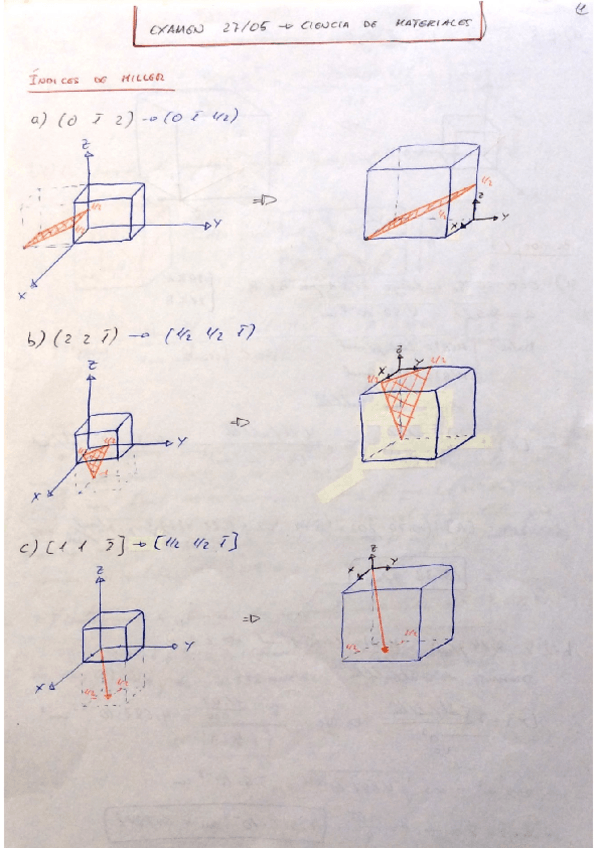 1
EXAMEN 27/05 → CIENCIA DE MATERIALES
ÍNDICES DE MILLER
a) (0 1̄ 2) → (0 1̄ 1/2)
Z
1/2
Y
X
⇒
1/2
Z
Y
X
b) (2 2 1̄) → (1/2 1/2 1̄)
Z
1/2
Y
X
⇒
Z
X Y
1/2 1/2
c) [1 1 2̄] → [1/2 1/2 1̄]
Z
Y
X
1/2 1/2
⇒
Z
X Y
1/2 1/2